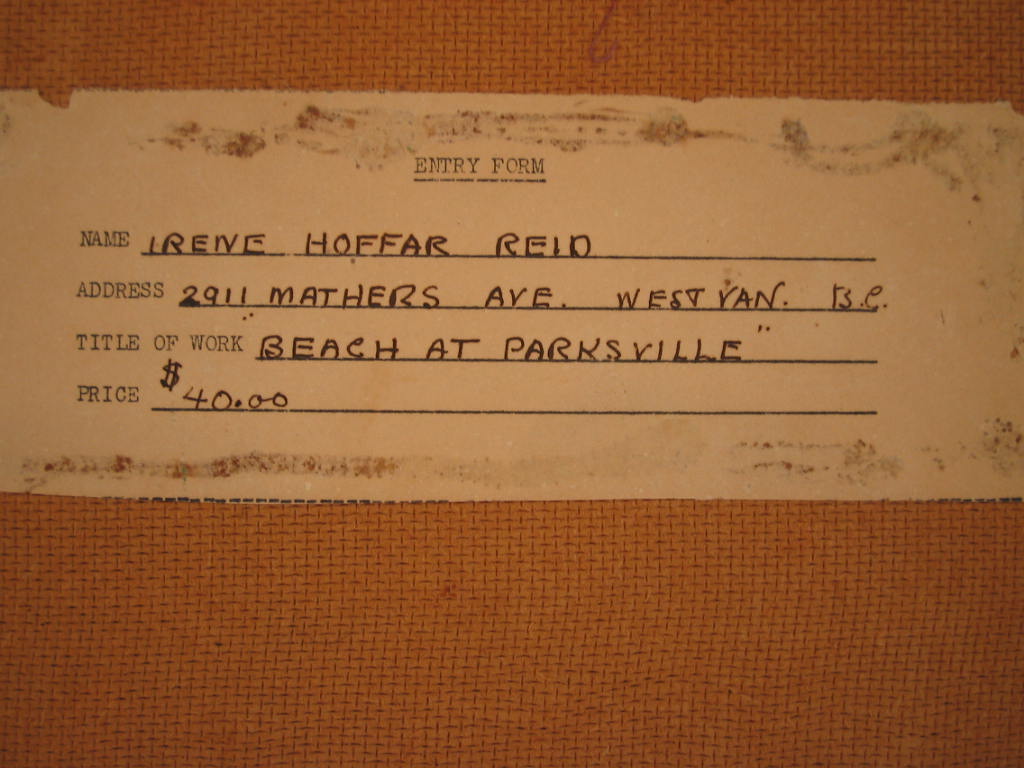 ENTRY FORM
NAME IRENE HOFFAR REID
ADDRESS 2911 MATHERS AVE. WEST VAN. B.C.
TITLE OF WORK "BEACH AT PARKSVILLE"
PRICE $40.00